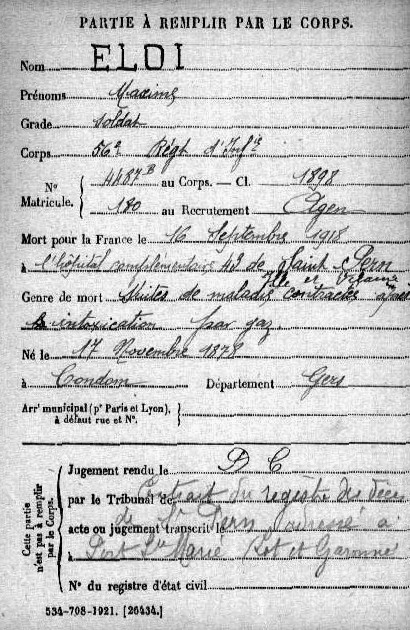 PARTIE À REMPLIR PAR LE CORPS.
Nom ELOI
Prénoms Maxime
Grade Soldat
Corps 56e Régt d'Infie
No Matricule. 4487 B au Corps. — Cl. 1898
180 au Recrutement Agen
Mort pour la France le 16 Septembre 1918
à l'hôpital complementaire 43 de Saint Pern
Ille et Vilaine
Genre de mort Suites de maladie contractée
intoxication par gaz
Né le 17 Novembre 1878
à Condom Département Gers
Arrt municipal (pr Paris et Lyon),
à défaut rue et No.
Cette partie n'est pas à remplir par le Corps.
Jugement rendu le D C
par le Tribunal de Extrait du registre des décès
acte ou jugement transcrit le de St Pern à
à Port Ste Marie Lot et Garonne
No du registre d'état civil
534-708-1921. [26434.]